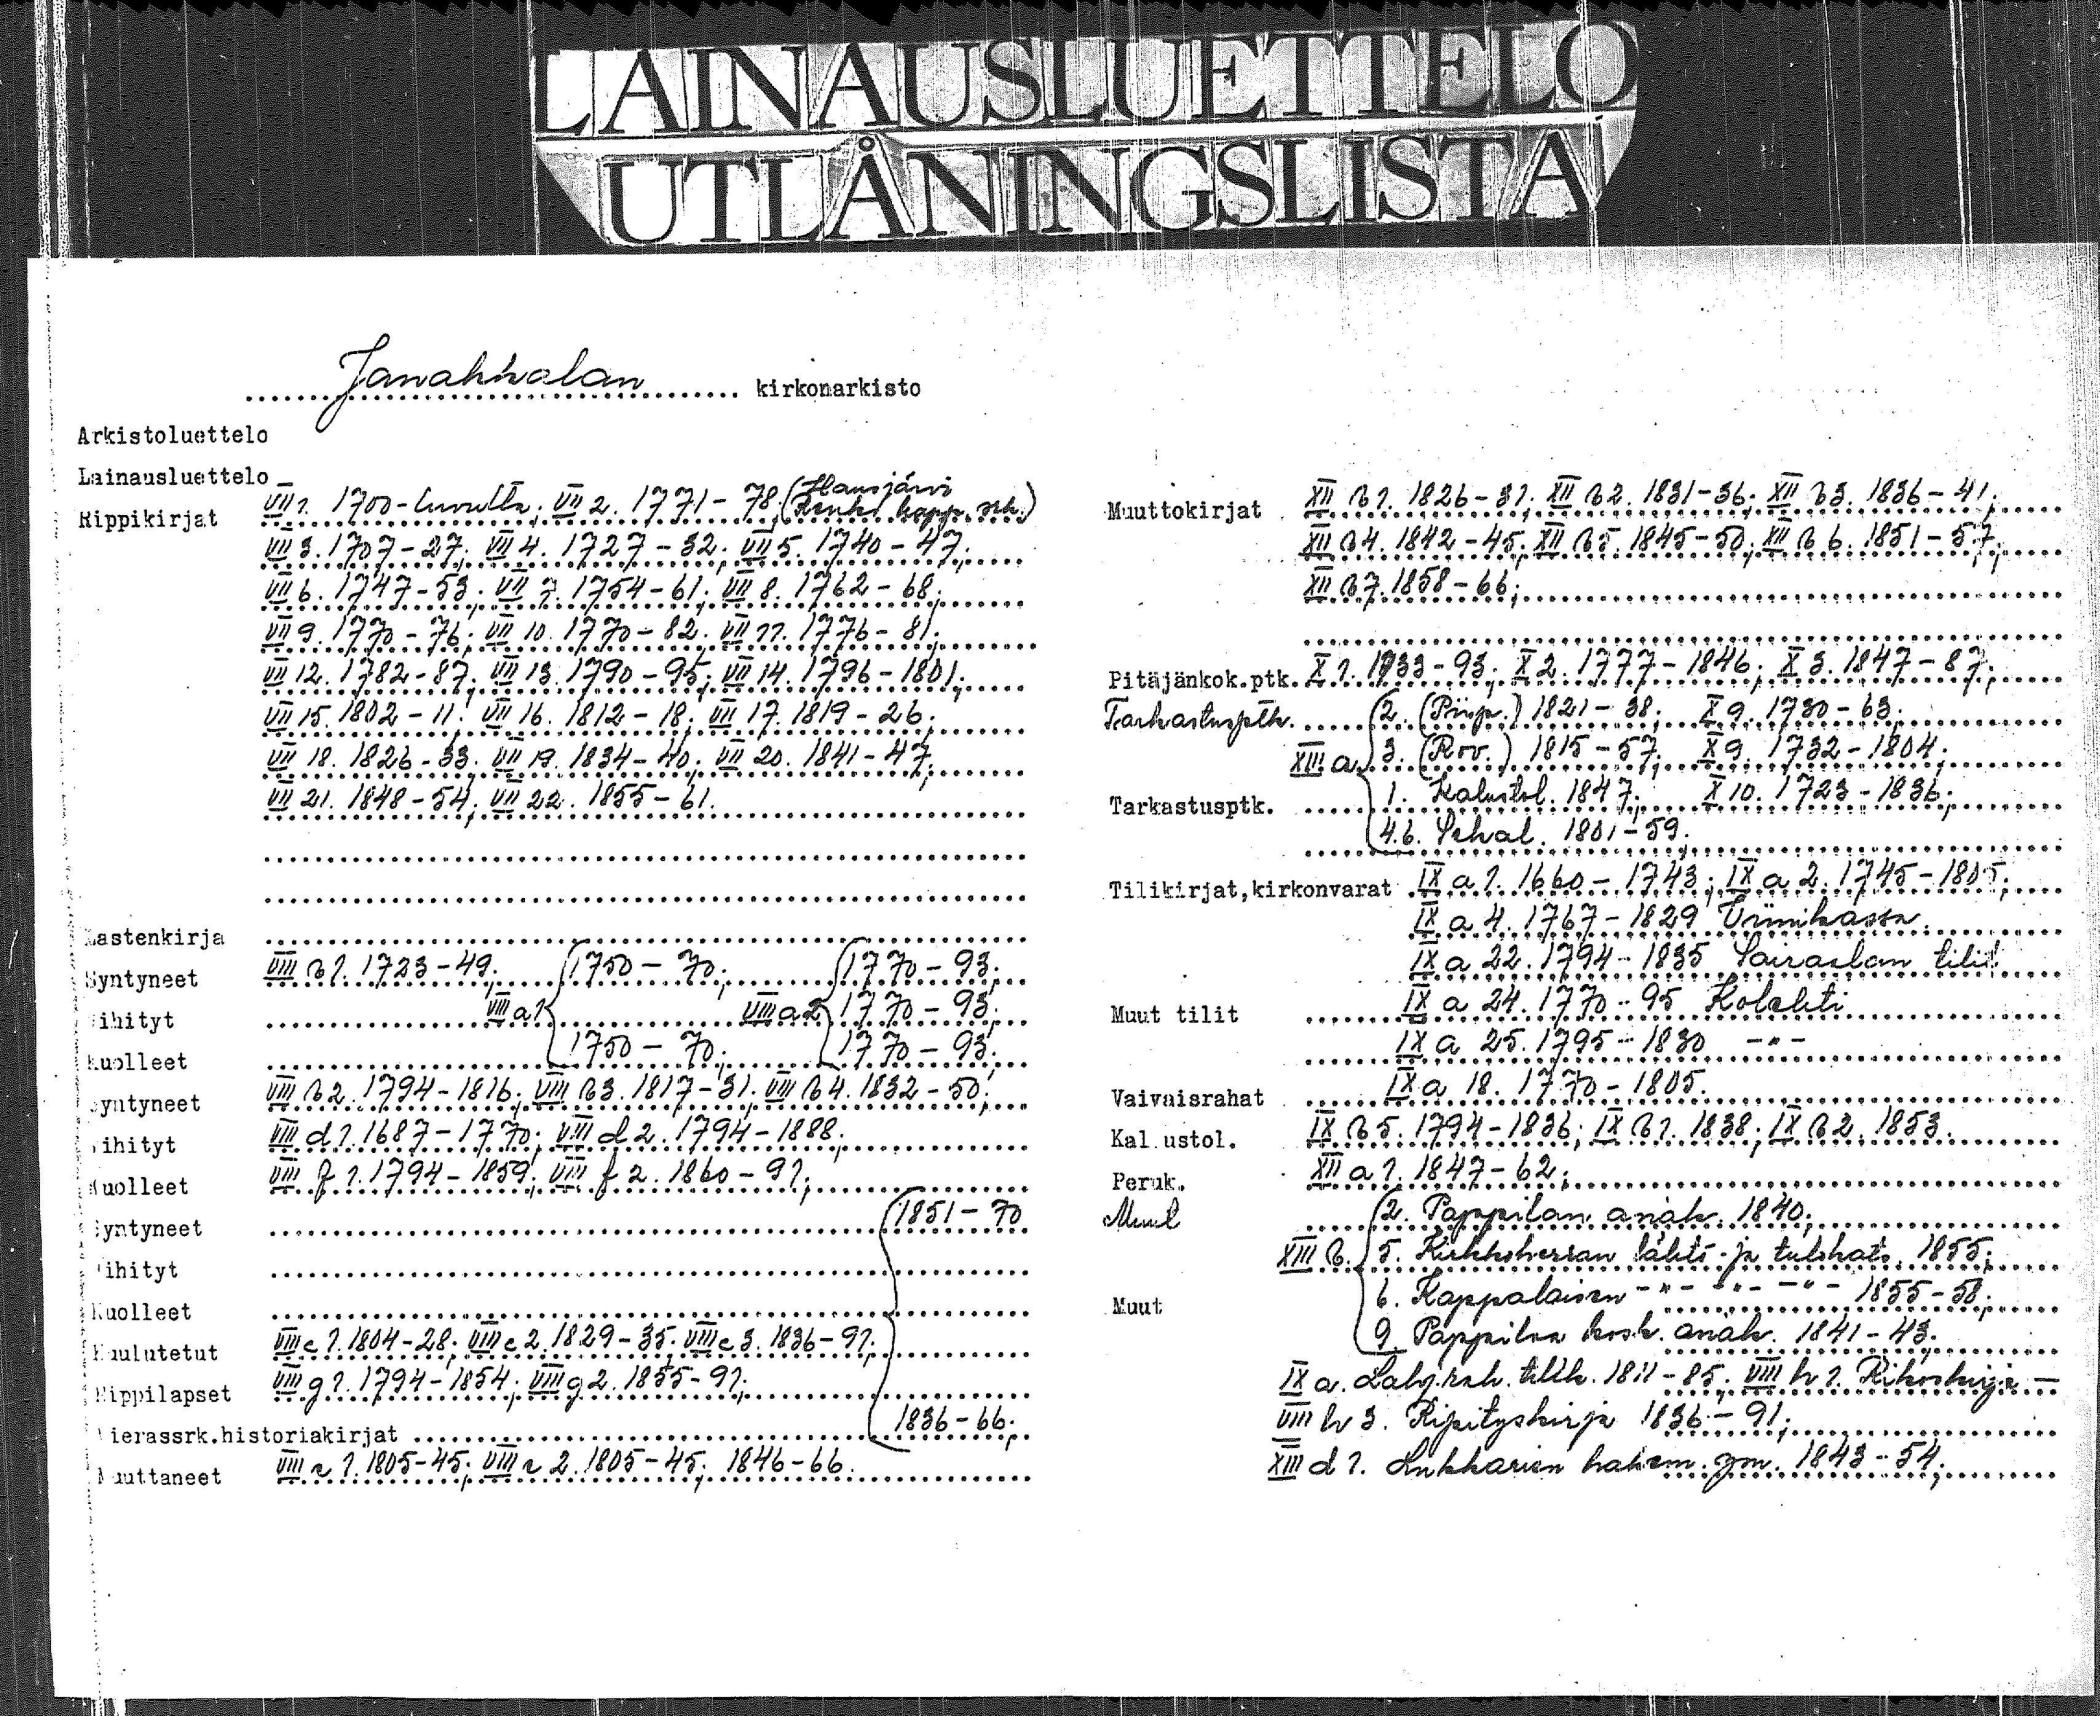 LAINAUSLUETTELO
UTLÅNINGSLISTA
Janakkalan kirkonarkisto
Arkistoluettelo
Lainausluettelo –
Rippikirjat VII 1. 1700-luvulta; VII 2. 1771-78 (Hausjärvi Renk. kapp. srk.)
VII 3. 1707-27; VII 4. 1727-32; VII 5. 1740-47;
VII 6. 1747-53; VII 7. 1754-61; VII 8. 1762-68;
VII 9. 1770-76; VII 10. 1770-82; VII 11. 1776-81;
VII 12. 1782-87; VII 13. 1790-95; VII 14. 1796-1801;
VII 15. 1802-11; VII 16. 1812-18; VII 17. 1819-26;
VII 18. 1826-33; VII 19. 1834-40; VII 20. 1841-47;
VII 21. 1848-54; VII 22. 1855-61.
Lastenkirja
Syntyneet VIII b 1. 1723-49. 1750-70; 1770-93;
Vihityt VIII a 1 VIII a 2 1770-93;
Kuolleet 1750-70; 1770-93;
Syntyneet VIII b 2. 1794-1816; VIII b 3. 1817-31; VIII b 4. 1832-50;
Vihityt VIII d 1. 1687-1770; VIII d 2. 1794-1888;
Kuolleet VIII f 1. 1794-1859; VIII f 2. 1860-91;
Syntyneet 1851-70
Vihityt
Kuolleet
Kuulutetut VIII c 1. 1804-28; VIII c 2. 1829-35; VIII c 3. 1836-91;
Rippilapset VIII g 1. 1794-1854; VIII g 2. 1855-91;
Vierassrk.historiakirjat 1836-66;
Muuttaneet VIII e 1. 1805-45; VIII e 2. 1805-45; 1846-66.
Muuttokirjat XII b 1. 1826-31; XII b 2. 1831-36; XII b 3. 1836-41;
XII b 4. 1842-45; XII b 5. 1845-50; XII b 6. 1851-57;
XII b 7. 1858-66;
Pitäjänkok.ptk. X 1. 1733-93; X 2. 1777-1846; X 3. 1847-87;
Tarkastusptk. 2. (Piisp.) 1821-38; X 9. 1730-63;
XIII a 3. (Rov.) 1815-57; X 9. 1732-1804;
Tarkastusptk. 1. Kalustol. 1847; X 10. 1723-1836;
4.6. Sekal. 1801-59;
Tilikirjat,kirkonvarat IX a 1. 1660-1743; IX a 2. 1745-1805;
IX a 4. 1767-1829 Viinikassa
IX a 22. 1794-1835 Sairaalan tilit
Muut tilit IX a 24. 1770-95 Kolehti
IX a 25. 1795-1830 -"-
Vaivaisrahat IX a 18. 1770-1805.
Kal.ustol. IX b 5. 1794-1836; IX b 1. 1838; IX b 2. 1853.
Peruk. XII a 1. 1847-62;
Muut 2. Pappilan asiak. 1840;
XIII b. 5. Kirkkoherran lähtö- ja tulokats. 1855;
6. Kappalaisen -"- -"- -"- 1855-58;
Muut 9. Pappilaa kosk. asiak. 1841-43;
IX a. Lahj.rah. tilik. 1811-85; VIII h 1. Rikoskirja –
VIII h 3. Ripityskirja 1836-91;
XIII d 1. Lukkarien hakem. ym. 1843-54;